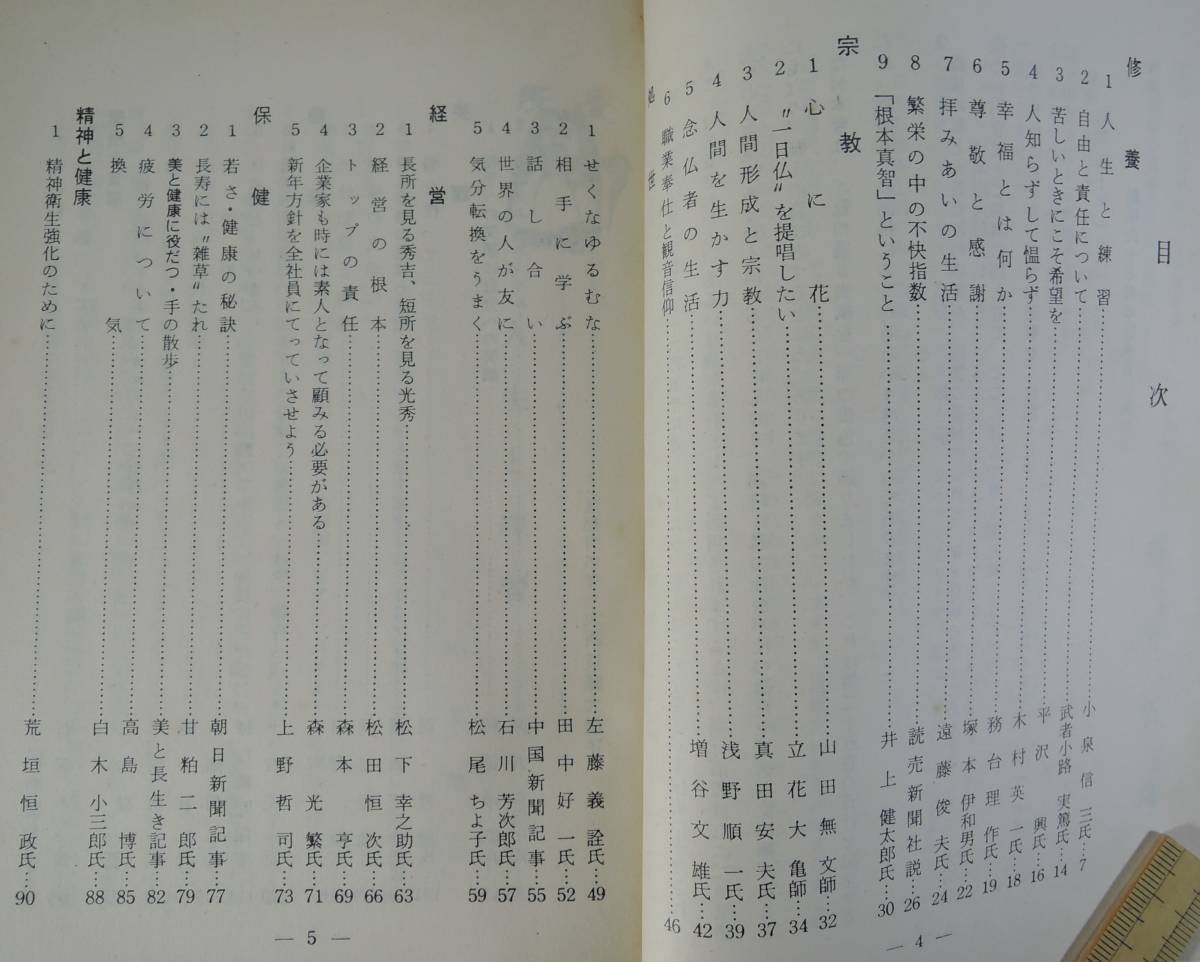 目次
修養
1 人生と練習……小泉信三氏…7
2 自由と責任について……武者小路 実篤氏…14
3 苦しいときにこそ希望を……平沢 興氏…16
4 人知らずして慍らず……木村英一氏…18
5 幸福とは何か……務台理作氏…19
6 尊敬と感謝……塚本伊和男氏…22
7 拝みあいの生活……遠藤俊夫氏…24
8 繁栄の中の不快指数……読売新聞社説…26
9 「根本真智」ということ……井上健太郎氏…30
宗教
1 心に花……山田無文師…32
2 〝一日仏〟を提唱したい……立花大亀師…34
3 人間形成と宗教……真田安夫氏…37
4 人間を生かす力……浅野順一氏…39
5 念仏者の生活……増谷文雄氏…42
6 職業奉仕と観音信仰……46
処世
— 4 —
1 せくなゆるむな……左藤義詮氏…49
2 相手に学ぶ……田中好一氏…52
3 話し合い……中国新聞記事…55
4 世界の人が友に……石川芳次郎氏…57
5 気分転換をうまく……松尾ちよ子氏…59
経営
1 長所を見る秀吉、短所を見る光秀……松下幸之助氏…63
2 経営の根本……松田恒次氏…66
3 トップの責任……森本亨氏…69
4 企業家も時には素人となって顧みる必要がある……森光繁氏…71
5 新年方針を全社員にてっていさせよう……上野哲司氏…73
保健
1 若さ・健康の秘訣……朝日新聞記事…77
2 長寿には〝雑草〟たれ……甘粕二郎氏…79
3 美と健康に役だつ・手の散歩……美と長生き記事…82
4 疲労について……高島博氏…85
5 換気……白木小三郎氏…88
精神と健康
1 精神衛生強化のために……荒垣恒政氏…90
— 5 —